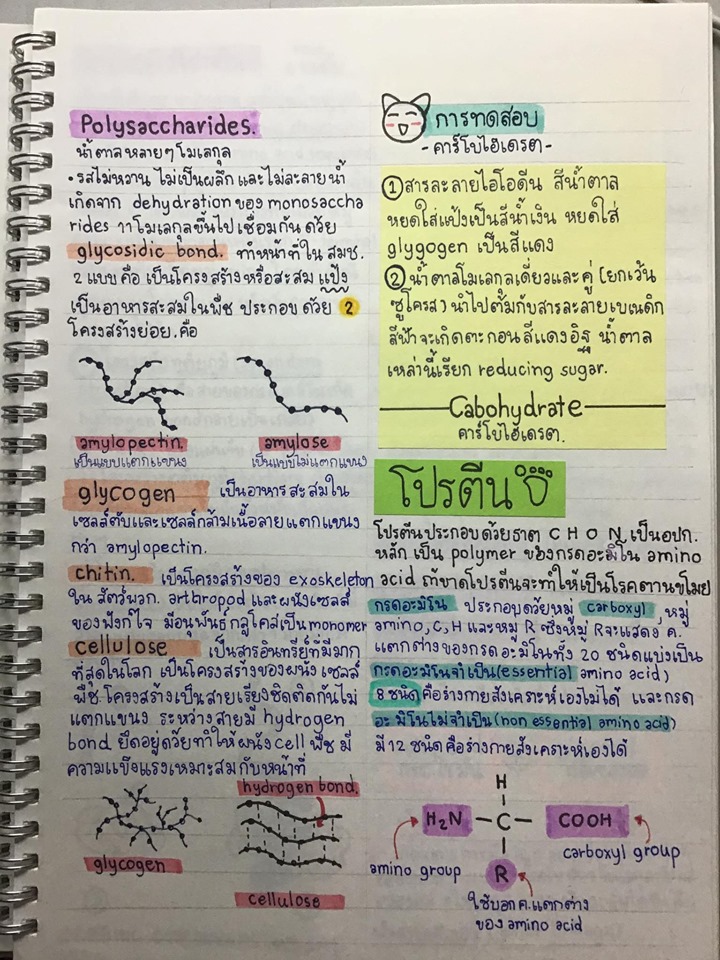 Polysaccharides.
น้ำตาลหลายๆโมเลกุล
•รสไม่หวาน ไม่เป็นผลึกและไม่ละลายน้ำ
เกิดจาก dehydration ของ monosaccha
rides าาโมเลกุลขึ้นไปเชื่อมกันด้วย
glycosidic bond. ทำหน้าที่ใน สมช.
2 แบบคือ เป็นโครงสร้างหรือสะสม แป้ง
เป็นอาหารสะสมในพืช ประกอบด้วย 2
โครงสร้างย่อย.คือ
amylopectin. amylose
เป็นแบบแตกแขนง เป็นแบบไม่แตกแขนง
glycogen เป็นอาหารสะสมใน
เซลล์ตับและเซลล์กล้ามเนื้อลายแตกแขนง
กว่า amylopectin.
chitin. เป็นโครงสร้างของ exoskeleton
ใน สัตว์พวก. arthropod และผนังเซลล์
ของฟังก์ไจ มีอนุพันธ์กลูโคสเป็นmonomer
cellulose เป็นสารอินทรีย์ที่มีมาก
ที่สุดในโลก เป็นโครงสร้างของผนังเซลล์
พืช.โครงสร้างเป็นสายเรียงชิดติดกันไม่
แตกแขนง ระหว่างสายมี hydrogen
bond ยึดอยู่ด้วยทำให้ผนังcell พืชมี
ความแข็งแรงเหมาะสมกับหน้าที่
glycogen
hydrogen bond.
cellulose
การทดสอบ
-คาร์โบไฮเดรต-
①สารละลายไอโอดีน สีน้ำตาล
หยดใส่แป้งเป็นสีน้ำเงิน หยดใส่
glygogen เป็นสีแดง
②น้ำตาลโมเลกุลเดี่ยวและคู่ [ยกเว้น
ซูโครส] นำไปต้มกับสารละลายเบเนดิก
สีฟ้าจะเกิดตะกอนสีแดงอิฐ น้ำตาล
เหล่านี้เรียก reducing sugar.
Cabohydrate
คาร์โบไฮเดรต.
โปรตีน
โปรตีนประกอบด้วยธาตุ C H O N เป็นอปก.
หลัก เป็น polymer ของกรดอะมิโน amino
acid ถ้าขาดโปรตีนจะทำให้เป็นโรคตานขโมย
กรดอะมิโน ประกอบด้วยหมู่ carboxyl ,หมู่
amino,C,H และหมู่ R ซึ่งหมู่ Rจะแสดง ค.
แตกต่างของกรดอะมิโนทั้ง 20 ชนิดแบ่งเป็น
กรดอะมิโนจำเป็น(essential amino acid)
8 ชนิด คือร่างกายสังเคราะห์เองไม่ได้ และกรด
อะมิโนไม่จำเป็น(non essential amino acid)
มี 12 ชนิดคือร่างกายสังเคราะห์เองได้
H
H₂N – C – COOH
R
amino group
carboxyl group
ใช้บอกค.แตกต่าง
ของ amino acid